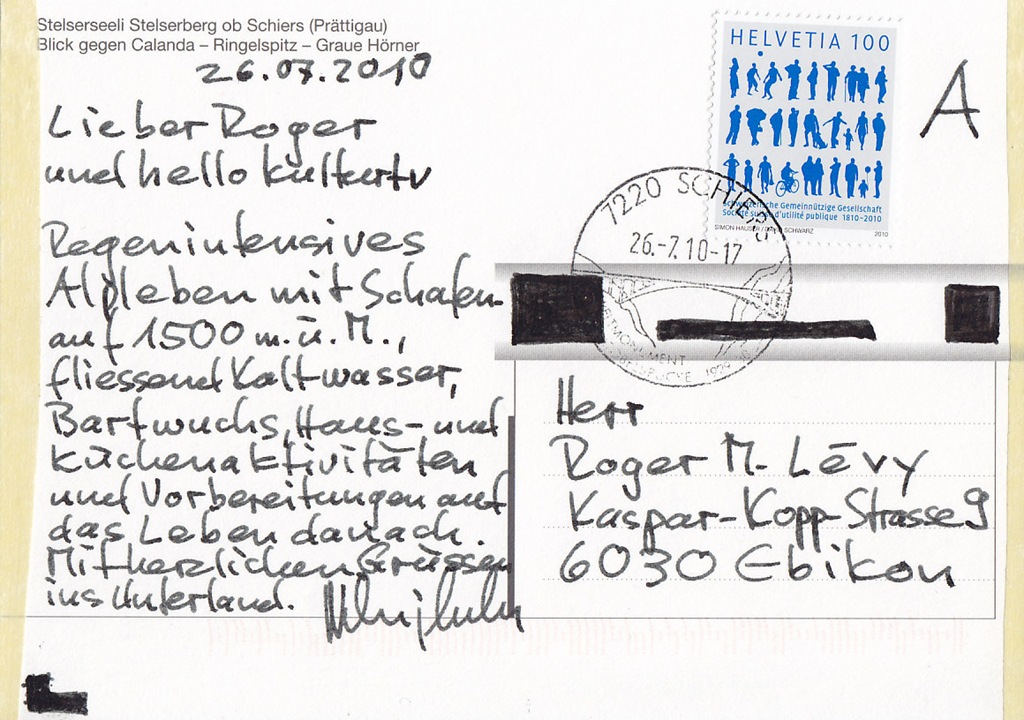 Stelserseeli Stelserberg ob Schiers (Prättigau)
Blick gegen Calanda – Ringelspitz – Graue Hörner
26.07.2010
Lieber Roger
und hello kulturtv
Regenintensives
Alpleben mit Schafen
auf 1500 m.ü.M.,
fliessend Kaltwasser,
Bartwuchs, Haus- und
Küchenaktivitäten
und Vorbereitungen auf
das Leben danach.
Mit herzlichen Grüssen
ins Unterland.
HELVETIA 100
Schweizerische Gemeinnützige Gesellschaft
Société suisse d'utilité publique 1810–2010
SIMON HAUSER / SCHWARZ 2010
A
7220 SCHIERS
26.-7.10-17
MONUMENT
Herr
Roger M. Lévy
Kaspar-Kopp-Strasse 9
6030 Ebikon